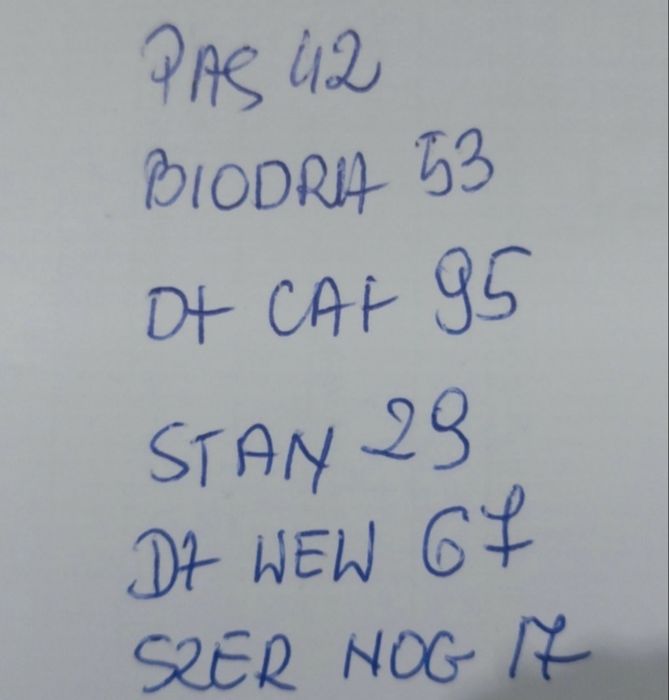 PAS 42
BIODRA 53
DŁ CAŁ 95
STAN 29
DŁ WEW 67
SZER NOG 17